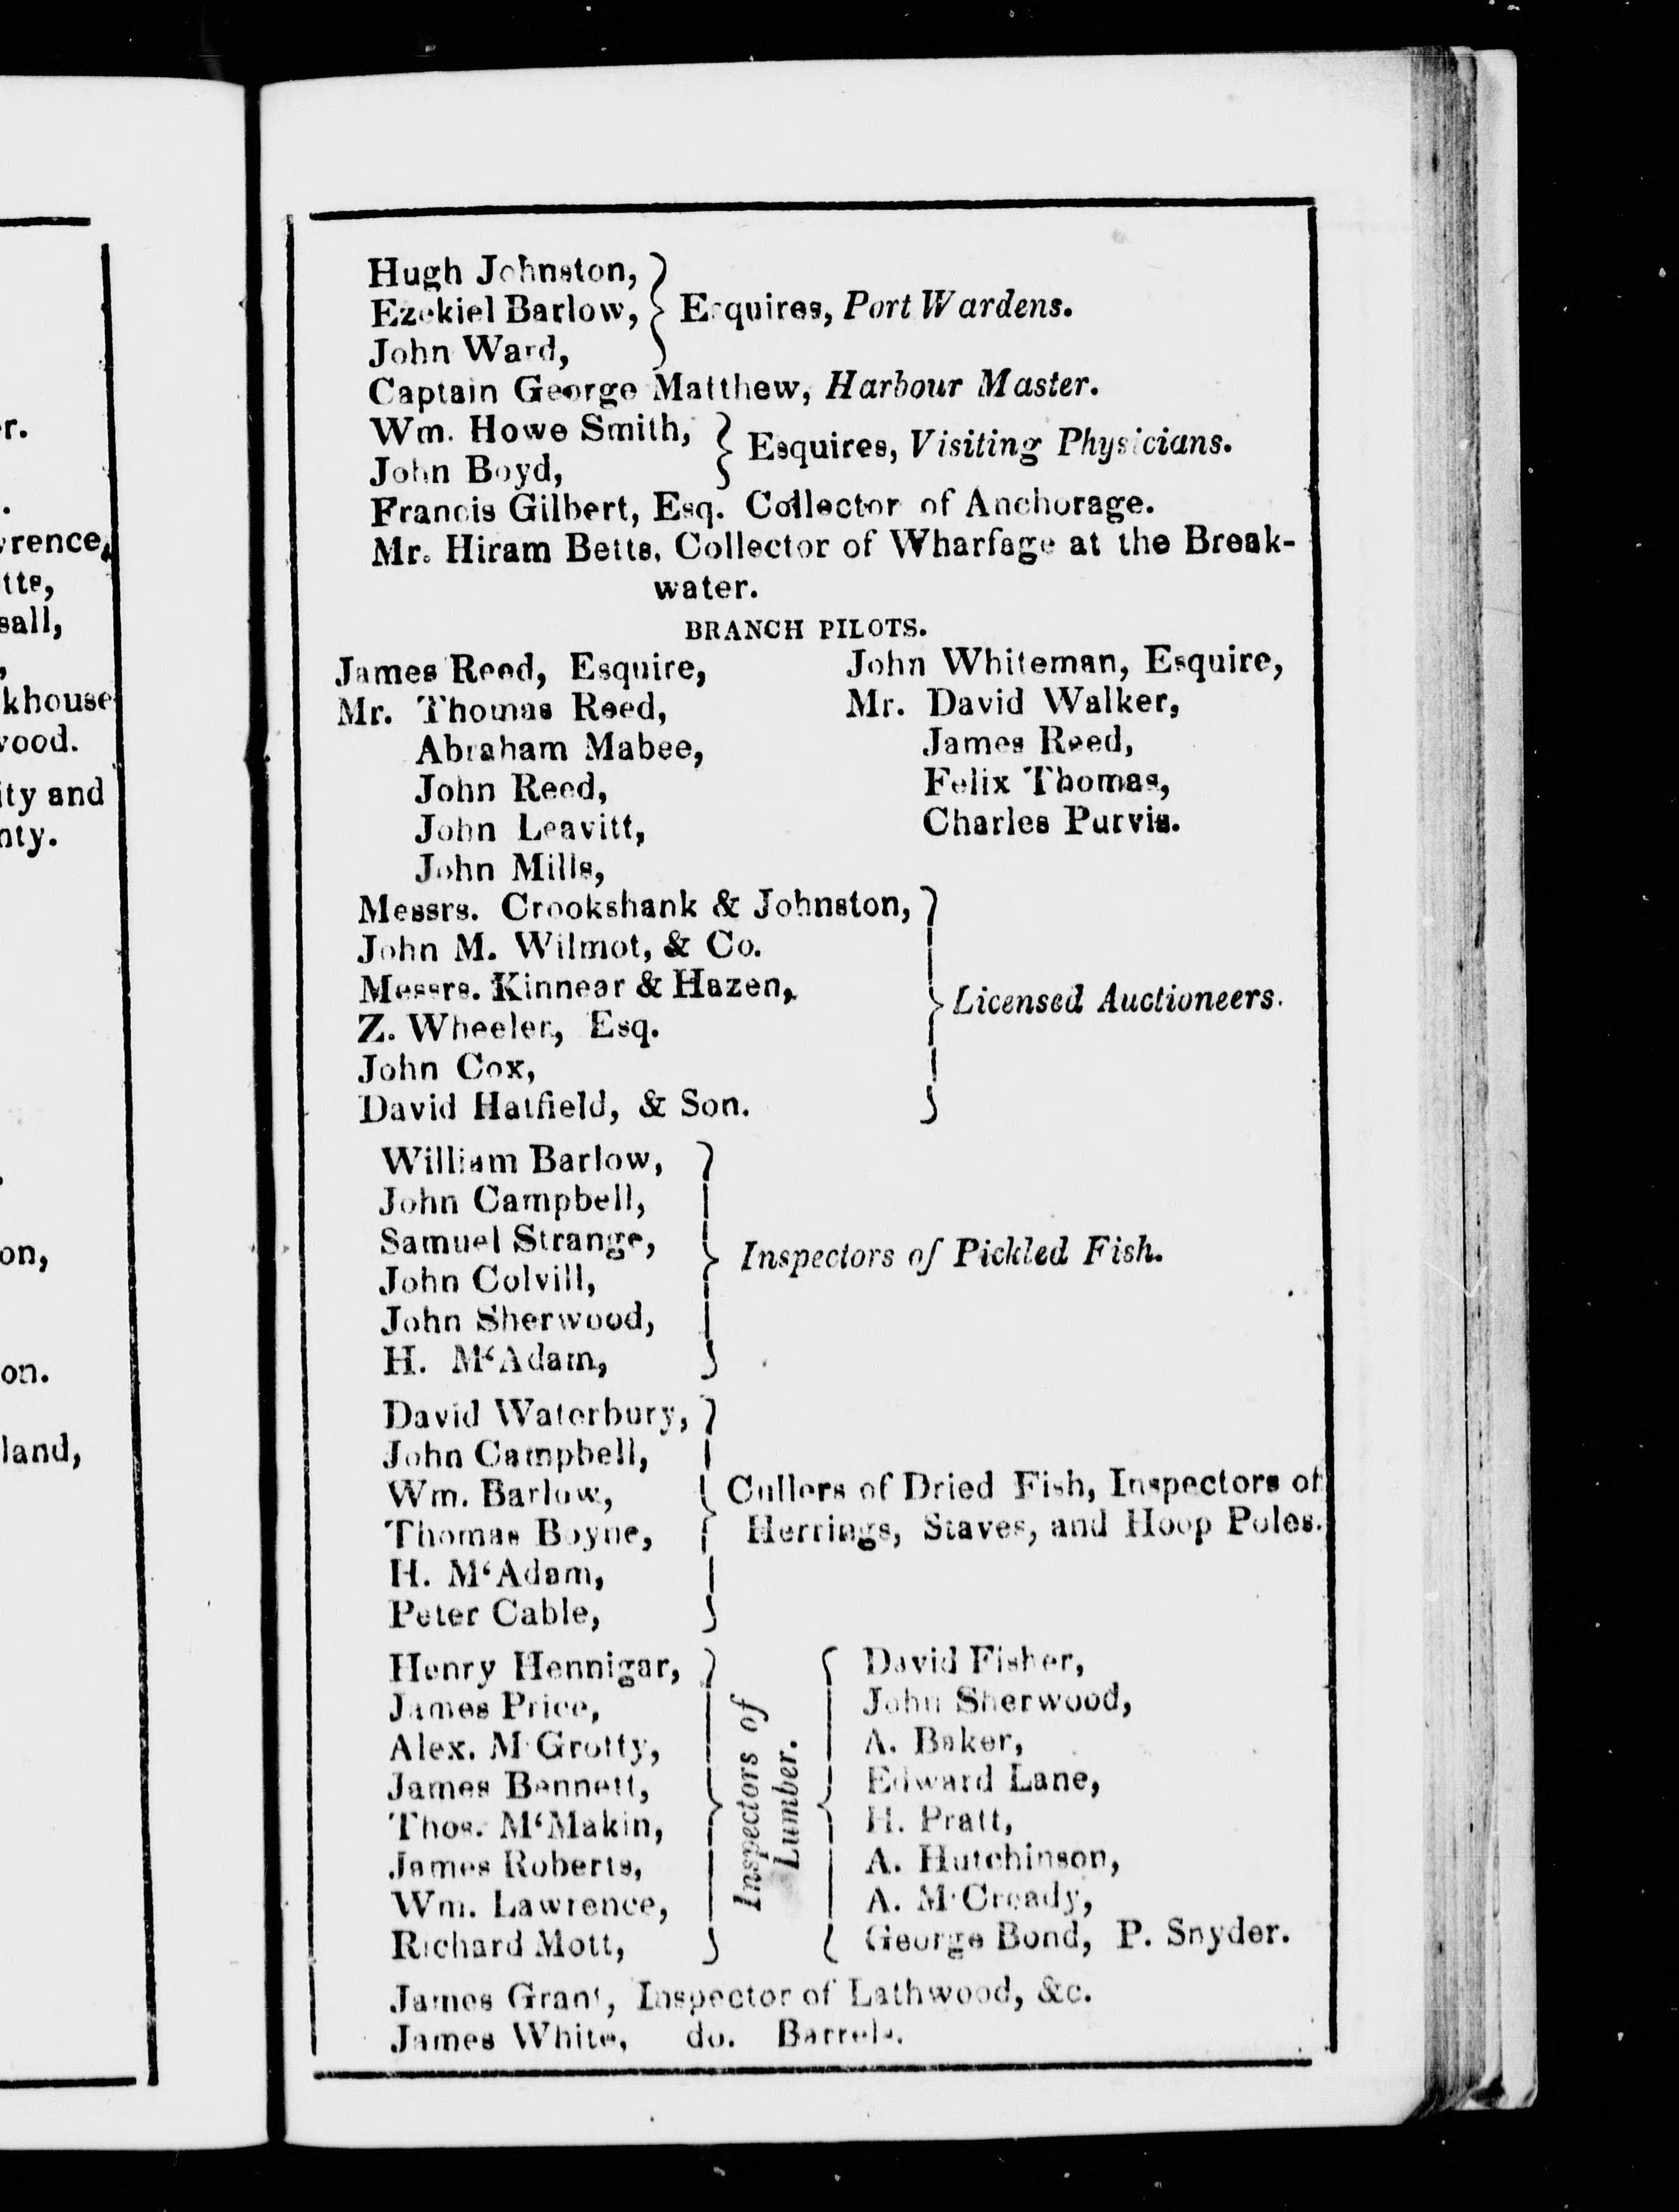 r.
.
rence,
tts,
sall,
,
khouse
wood.
ity and
nty.
.
on,
on.
land,
Hugh Johnston,
Ezekiel Barlow, } Esquires, Port Wardens.
John Ward,
Captain George Matthew, Harbour Master.
Wm. Howe Smith,
John Boyd, } Esquires, Visiting Physicians.
Francis Gilbert, Esq. Collector of Anchorage.
Mr. Hiram Betts, Collector of Wharfage at the Break-
water.
BRANCH PILOTS.
James Reed, Esquire,
Mr. Thomas Reed,
Abraham Mabee,
John Reed,
John Leavitt,
John Mills,
John Whiteman, Esquire,
Mr. David Walker,
James Reed,
Felix Thomas,
Charles Purvis.
Messrs. Crookshank & Johnston,
John M. Wilmot, & Co.
Messrs. Kinnear & Hazen,
Z. Wheeler, Esq.
John Cox,
David Hatfield, & Son.
} Licensed Auctioneers.
William Barlow,
John Campbell,
Samuel Strange,
John Colvill,
John Sherwood,
H. M‘Adam,
} Inspectors of Pickled Fish.
David Waterbury,
John Campbell,
Wm. Barlow,
Thomas Boyne,
H. M‘Adam,
Peter Cable,
} Cullers of Dried Fish, Inspectors of
Herrings, Staves, and Hoop Poles.
Henry Hennigar,
James Price,
Alex. M‘Grotty,
James Bennett,
Thos. M‘Makin,
James Roberts,
Wm. Lawrence,
Richard Mott,
} Inspectors of
Lumber. {
David Fisher,
John Sherwood,
A. Baker,
Edward Lane,
H. Pratt,
A. Hutchinson,
A. M‘Cready,
George Bond, P. Snyder.
James Grant, Inspector of Lathwood, &c.
James White, do. Barrels.